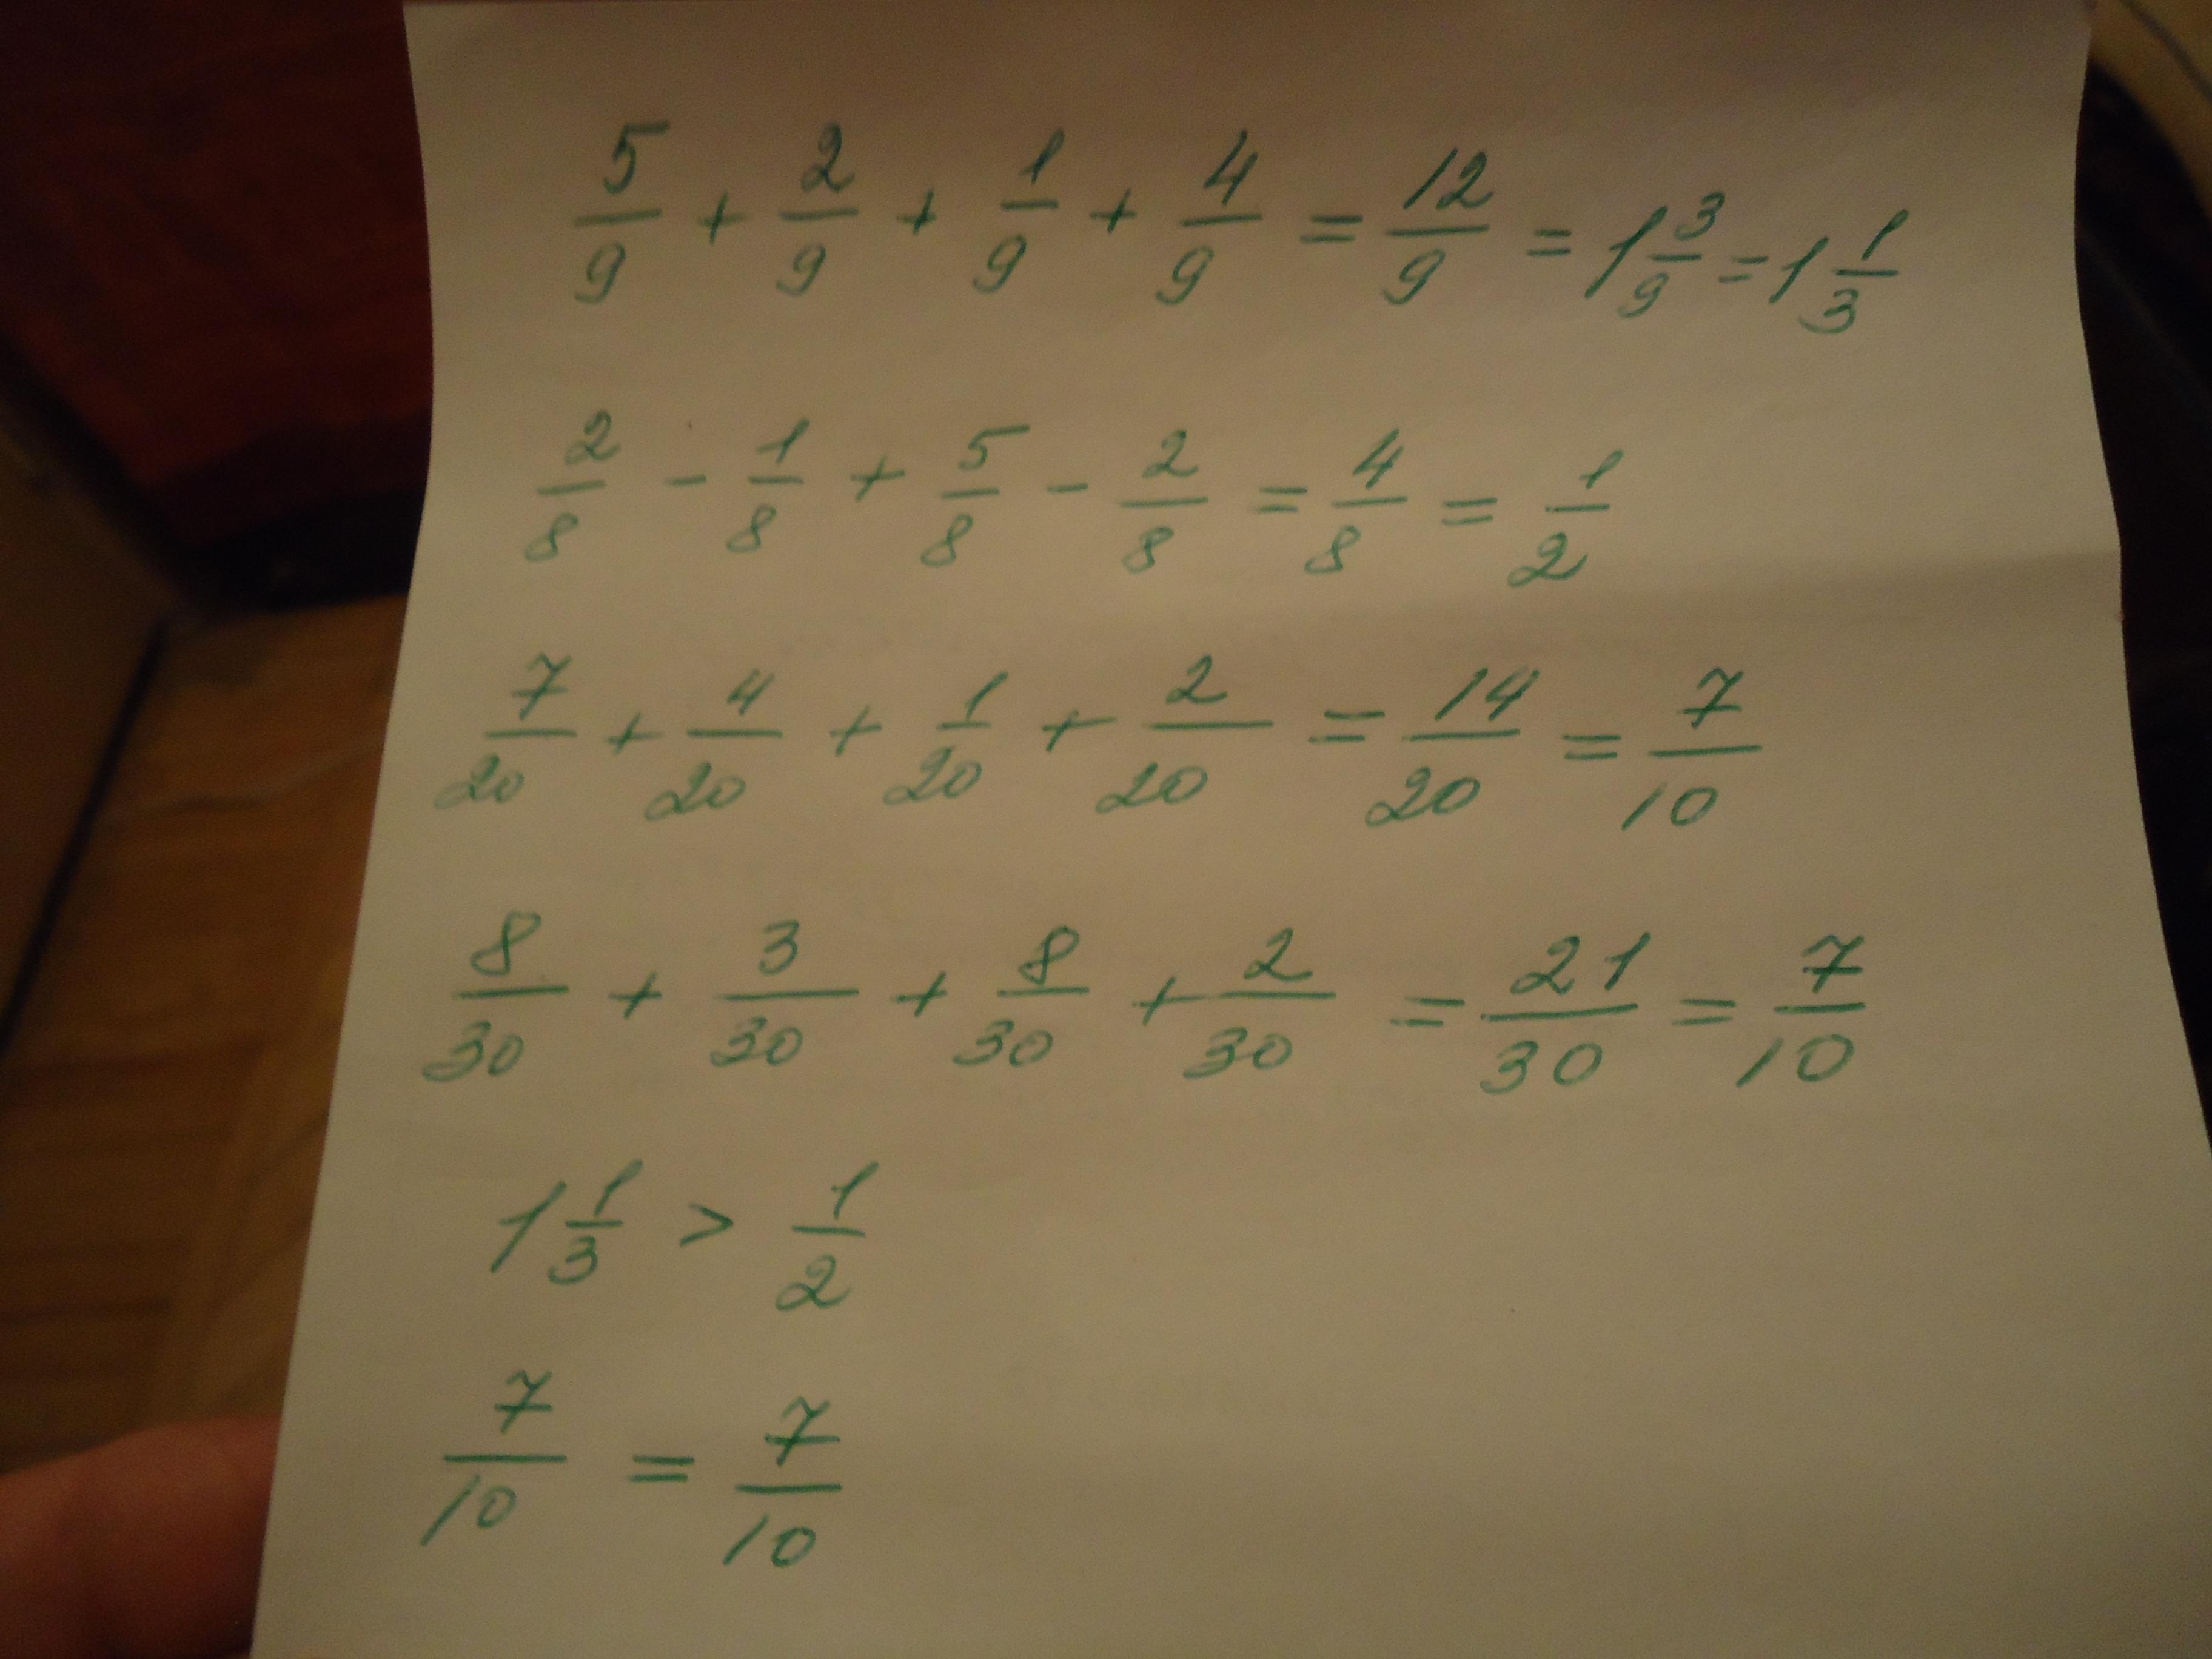 5/9 + 2/9 + 1/9 + 4/9 = 12/9 = 1 3/9 = 1 1/3
2/8 - 1/8 + 5/8 - 2/8 = 4/8 = 1/2
7/20 + 4/20 + 1/20 + 2/20 = 14/20 = 7/10
8/30 + 3/30 + 8/30 + 2/30 = 21/30 = 7/10
1 1/3 > 1/2
7/10 = 7/10